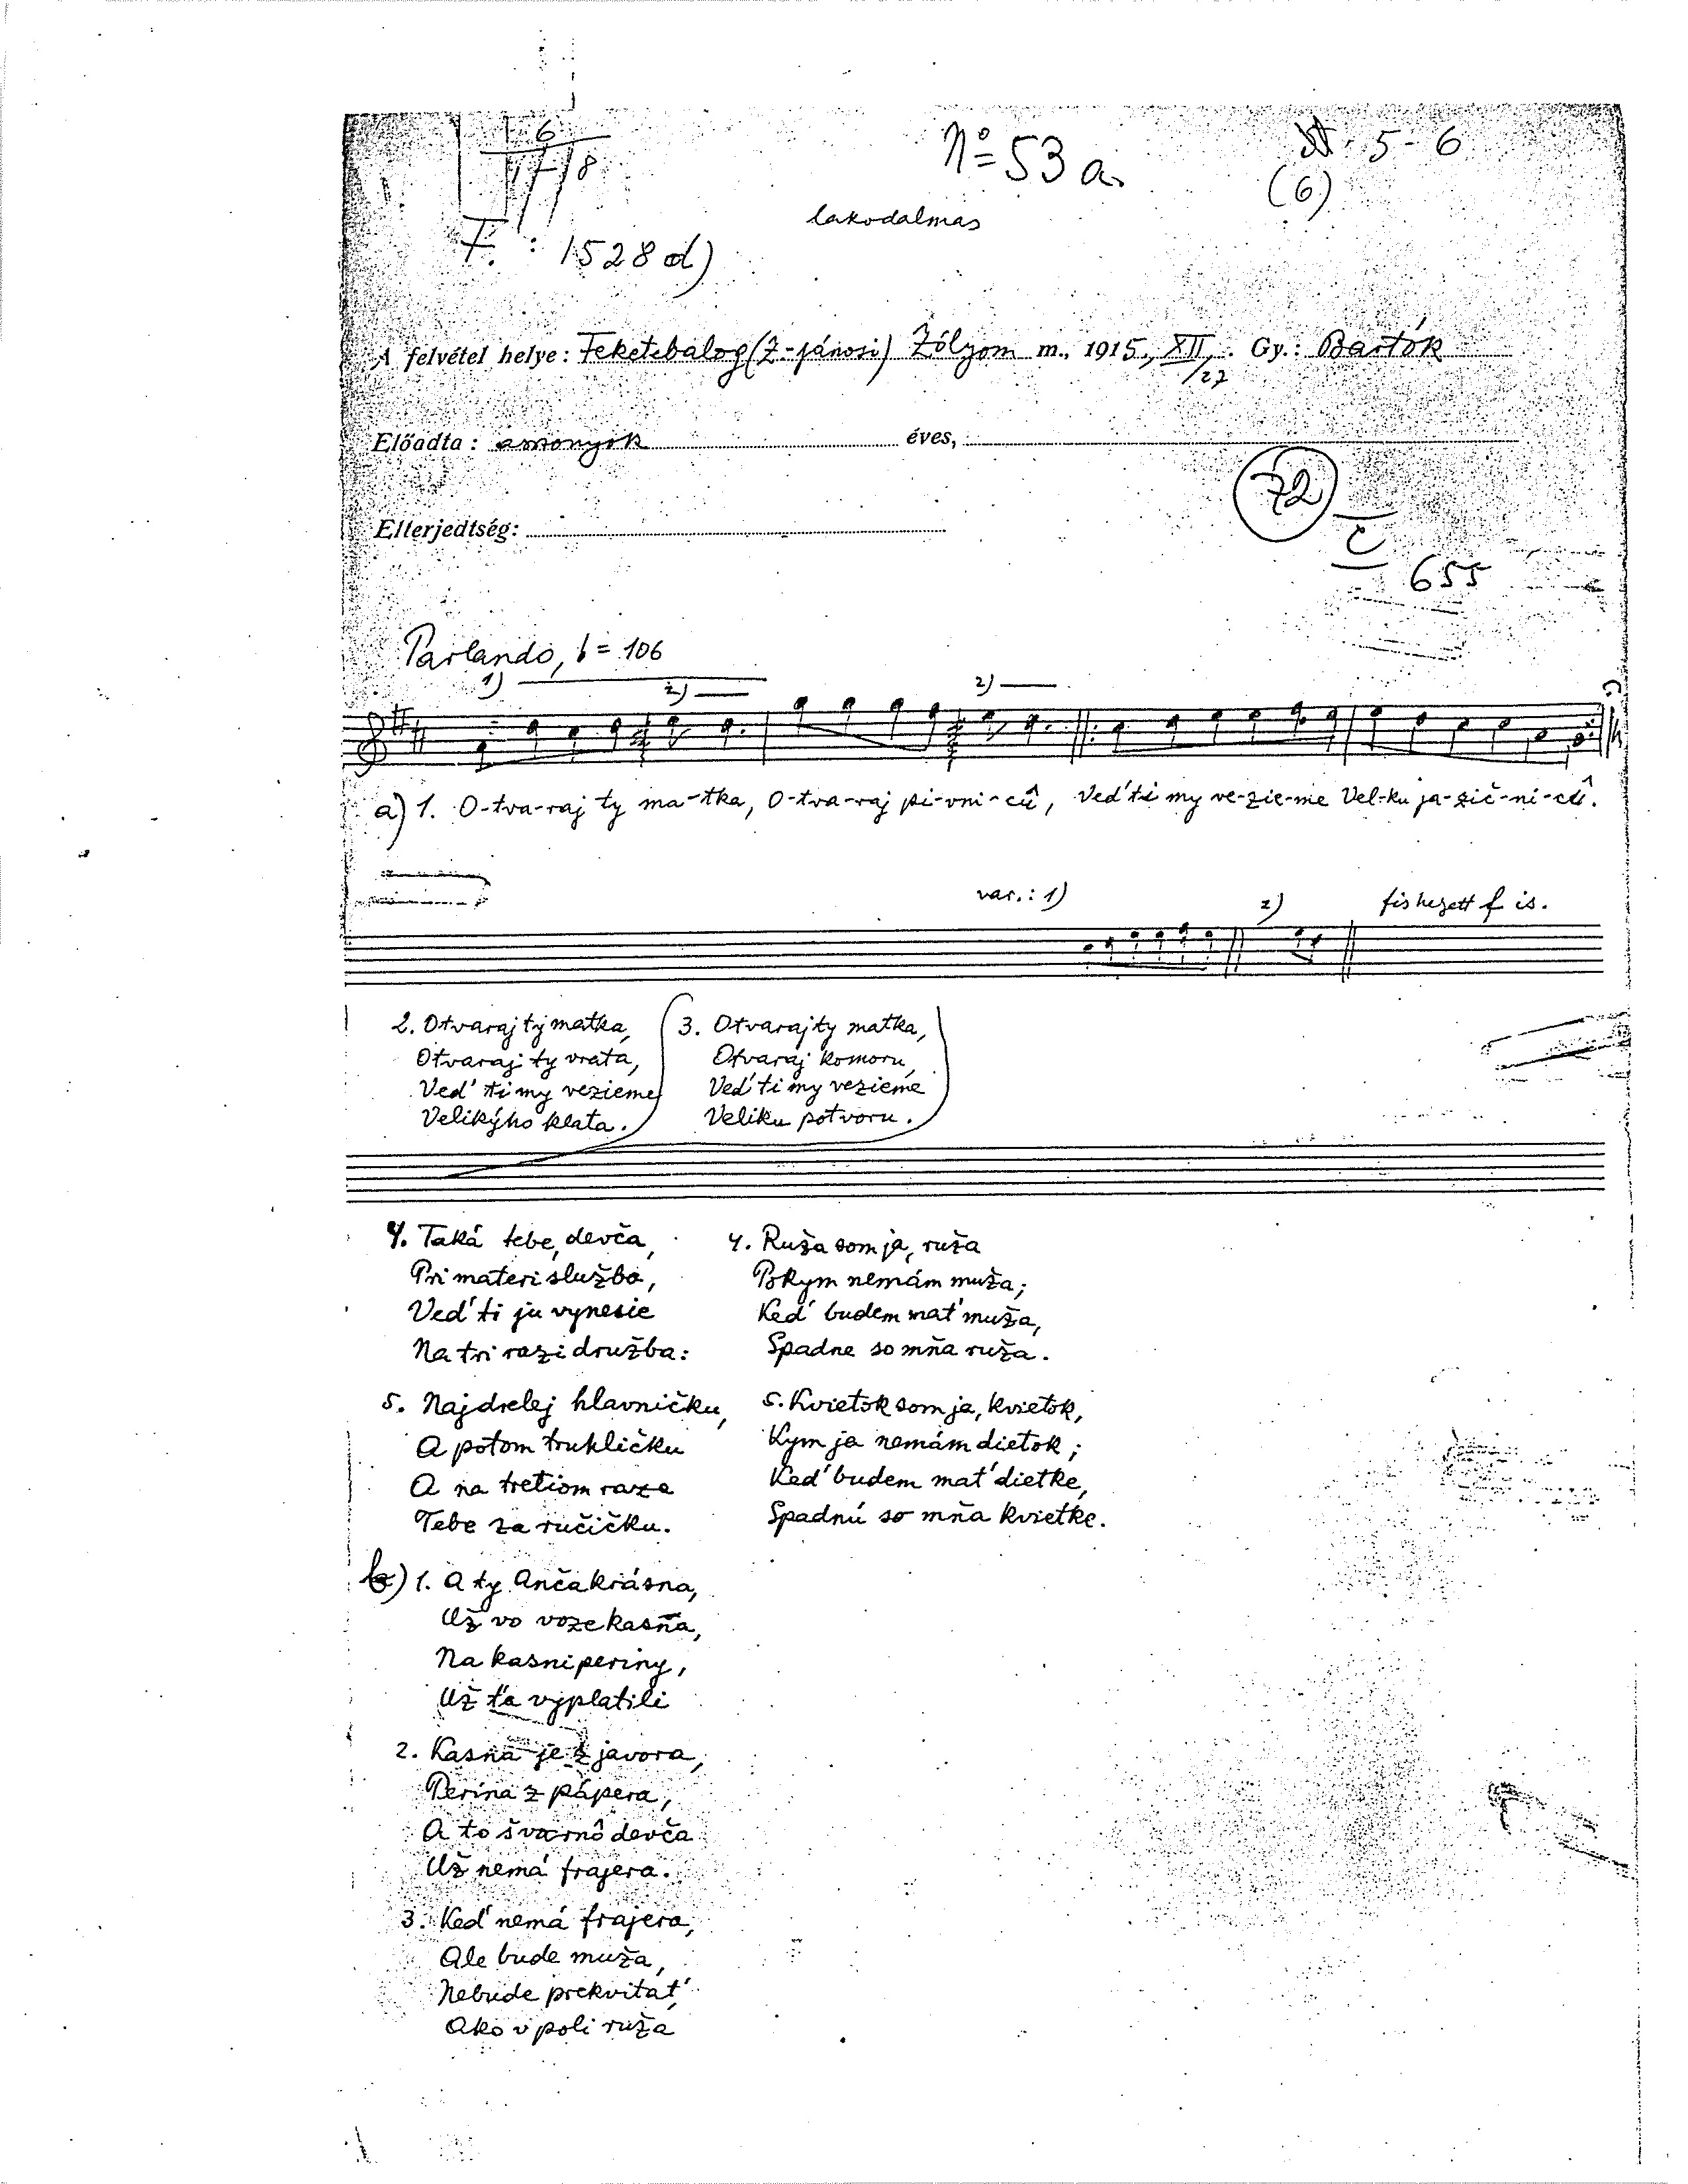 6
17/8
No 53 a.
5-6
(6)
lakodalmas
F. : 1528 d)
A felvétel helye: Feketebalog (Z-jánosi) Zólyom m., 1915, XII/27. Gy.: Bartók
Előadta: asszonyok éves,
72
c
Elterjedtség:
655
Parlando, = 106
1) 2) 2)
a) 1. O-tva-raj ty ma-tka, O-tva-raj pi-vni-cû, Veď ti my ve-zie-me Vel-ku ja-zič-ni-cû.
var.: 1) 2) fis hegett f is.
2. Otvaraj ty matka,
Otvaraj ty vrata,
Veď ti my vezieme
Velikýho klata.
3. Otvaraj ty matka,
Otvaraj komoru,
Veď ti my vezieme
Veliku potvoru.
4. Taká tebe, devča,
Pri materi služba,
Veď ti ju vynesie
Na tri razi družba:
5. Najdrelej hlavničku,
A potom trukličku
A na tretiom raze
Tebe za ručičku.
4. Ruža som ja, ruža
Pokym nemám muža;
Keď budem mať muža,
Spadne so mňa ruža.
5. Kvietok som ja, kvietok,
Kym ja nemám dietok;
Keď budem mať dietke,
Spadnú so mňa kvietke.
b) 1. A ty Anča krásna,
Už vo voze kasňa,
Na kasni periny,
Už ťa vyplatili
2. Kasňa je z javora,
Perina z pápera,
A to švarnô devča
Už nemá frajera.
3. Keď nemá frajera,
Ale bude muža,
Nebude prekvitať,
Ako v poli ruža